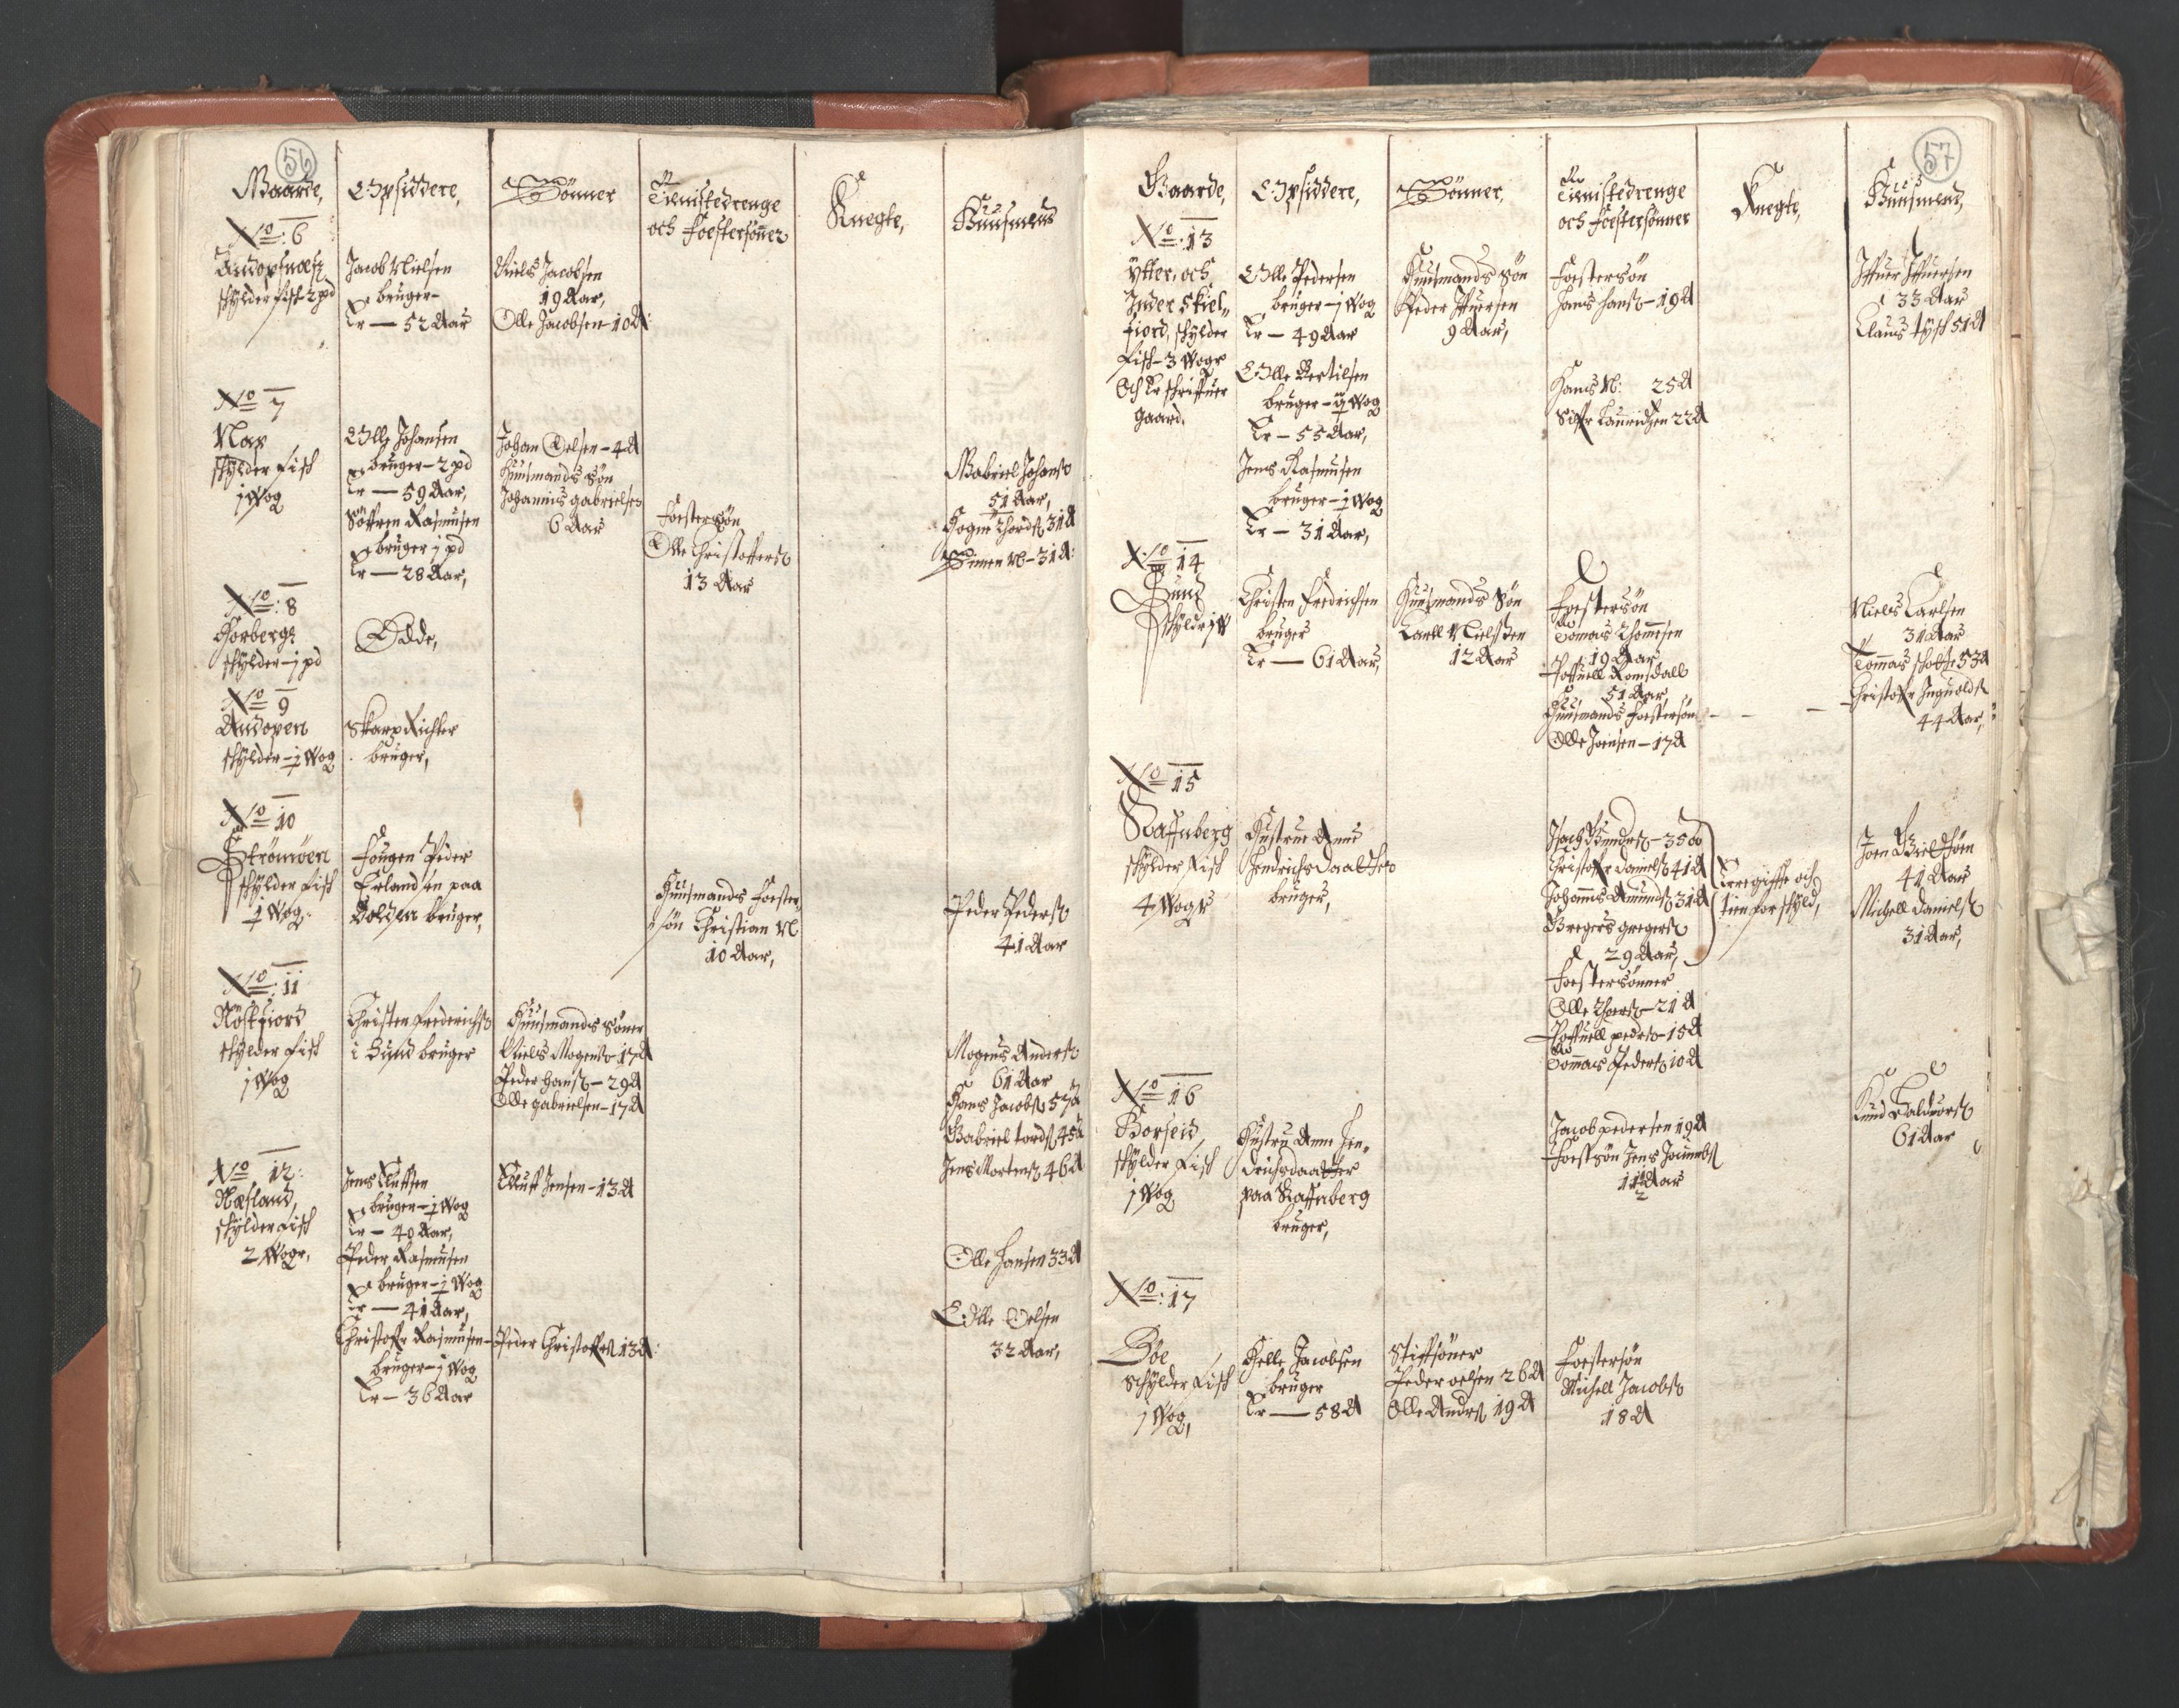 56
Gaarde,
Opsiddere,
Sönner
Tienistedrenge
och Foestersöner
Knegte,
Huusmend
No: 6
skylder Fisk 2 pd
Jacob Nielsen
bruger
Er — 52 Aar
Niels Jacobsen
19 Aar,
Olle Jacobsen 10 A:
No 7
Nap
skylder Fisk
j Wog
Olle Johansen
bruger – 2 pd
Er — 59 Aar,
Söffren Rasmusen
bruger j pd
Er — 28 Aar,
Johan Oelsen – 4 A
Huusmands Sön
Johannis gabrielsen
6 Aar
Foestersön
Olle Christoffers
13 Aar
Gabriel Johans
51 Aar,
31 A
Simen N – 31 A:
No: 8
skylder – j pd
Ödde,
No 9
Andopen
skylder – j Wog
bruger,
No 10
Strömöen
skylder Fisk
j Wog:
Fougen Peder
Erlandsen paa
bruger,
Huusmands Foester
sön Christian N
10 Aar,
Peder Peders
41 Aar
No: 11
Nöstfiord
skylder Fisk
j Wog
Christen Frederichs
i Sund bruger
Huusmands Söner
Niels Mogens 17 A
Peder Hans – 29 A
Olle gabrielsen – 17 A
Mogens Anders
61 Aar
Hans Jacobs 57 A
Gabriel tords 45 A
Jens Mortens 46 A
No 12:
Næsland,
skylder Fisk
2 Woger,
Jens Ruffsen
bruger – j Wog
Er – 40 Aar,
Peder Rasmusen
bruger – j Wog
Er — 41 Aar,
Christoffer Rasmusen
bruger – j Wog
Er – 36 Aar
Jensen – 13 A
Peder Christoffers 13 A:
Olle Hansen 33 A
Olle Oelsen
32 Aar,
57
Gaarde,
Opsiddere,
Sönner,
Tienistedrenge
och Foestersönner
Knegte,
Huusmend,
No: 13
Ytter, och
Inder Skiel„
fiord, skylder
Fisk – 3 Woger
Och Er
gaard.
Olle Pedersen
bruger – j Wog
Er – 49 Aar
Olle Bertilsen
bruger – j Wog
Er – 55 Aar,
Jens Rasmusen
bruger – j Wog
Er – 31 Aar,
Huusmands Sön
Peder Iffuersen
9 Aar,
Foestersön
Hans Hans – 19 A
Hans N: 25 A
Siffr Lauridzen 22 A
Iffuer Iffuersen
33 Aar
Claus tysk 51 A
No 14
Sund
skylder j W
Christen Fredrichsen
bruger
Er — 61 Aar,
Huusmands Sön
Carll Nielsen
12 Aar
Foestersön
Tomas Thomesen
19 Aar
Poffuell Romsdall
51 Aar
Huusmands Foestersön
Olle Joensen – 17 A
Niels Carlsen
31 Aar
Tomas 53 A
Christoffer Inguolds
44 Aar,
No 15
Raffnberg
skylder Fisk
4 Woger
Hustrue Anne
Hendrichsdaatter
bruger,
35 A
Christoffer Daniels 41 A
Johannis Amunds 31 A
Gregers gregers
29 Aar,
Foestersönner
Olle Thors – 21 A
Poffuell peders – 15 A
Tommas Peders 10 A
Ere giffte och
tien for skyld,
Joen
41 Aar
Michell Daniels
31 Aar,
No 16
Borseid,
skylder Fisk
j Wog
Hustru Anne Hen„
drichsdaatter
paa Raffnberg
bruger,
Jacob pedersen 19 A
11½ Aar
61 Aar
No: 17
Böe
Schylder Fisk
j Wog,
Helle Jacobsen
bruger
Er — 58 A
Stiffsöner
Peder oelsen 26 A
Olle Anders 19 A
Foestersön
Michell Jacobs
18 A